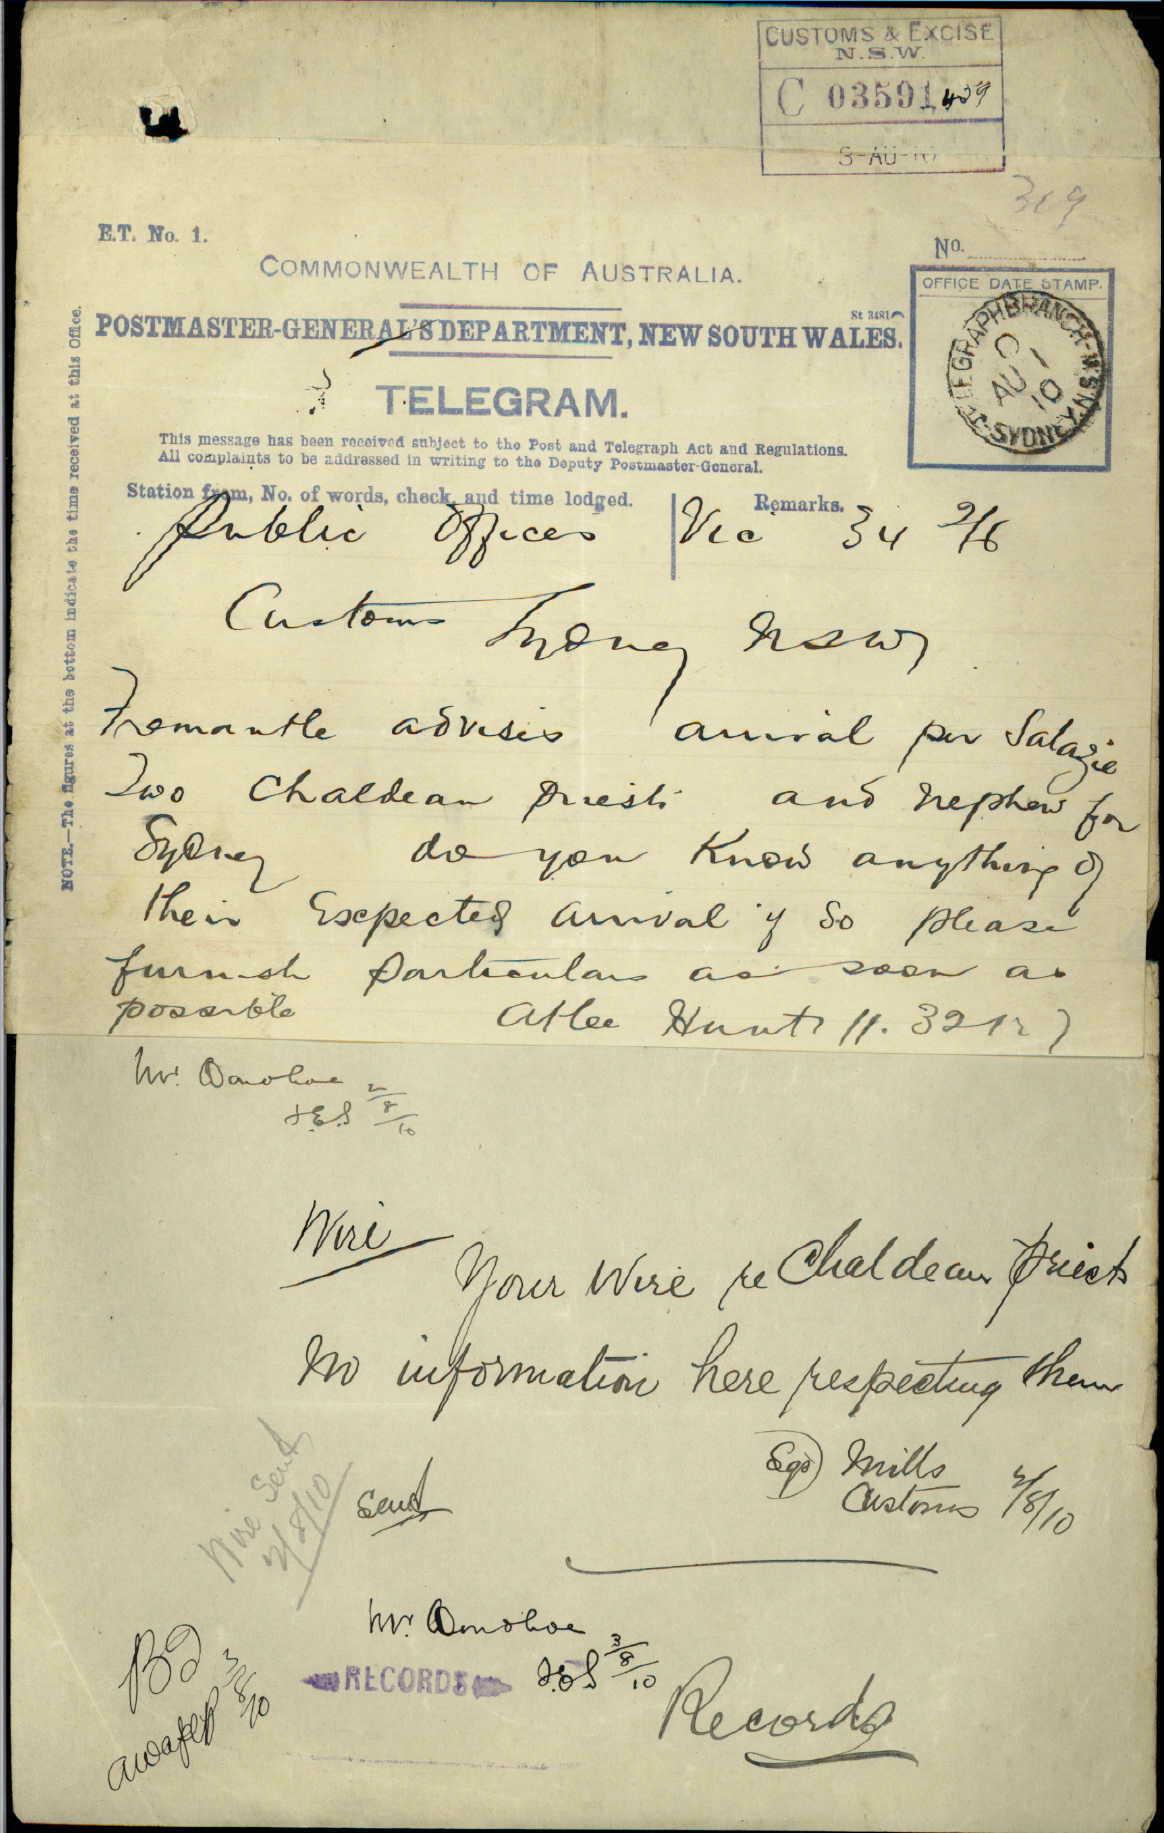 CUSTOMS & EXCISE
N.S.W.
C 03591
3-AU-10
319
E.T. No. 1.
No.
COMMONWEALTH OF AUSTRALIA.
OFFICE DATE STAMP.
TELEGRAPH BRANCH N.S.W. SYDNEY
1 AU 10
St 3481
POSTMASTER-GENERAL'S DEPARTMENT, NEW SOUTH WALES.
TELEGRAM.
This message has been received subject to the Post and Telegraph Act and Regulations.
All complaints to be addressed in writing to the Deputy Postmaster-General.
Station from, No. of words, check, and time lodged.
Remarks.
NOTE.—The figures at the bottom indicate the time received at this Office.
Public Offices Vic 34 2/6
Customs Sydney NSW
Fremantle advises arrival per Salazie
Two Chaldean priests and nephew for
Sydney do you Know anything of
their Expected arrival if so please
furnish particulars as soon as
possible Atlee Hunt 11.32
Mr. Donohoe
2/8/10
Wire
Your Wire re Chaldean priests
No information here respecting them
Sgd) Mills
Customs 2/8/10
Wire Sent
2/8/10
Send
Mr. Donohoe
3/8/10
RECORDS
Records
BD 3/8/10